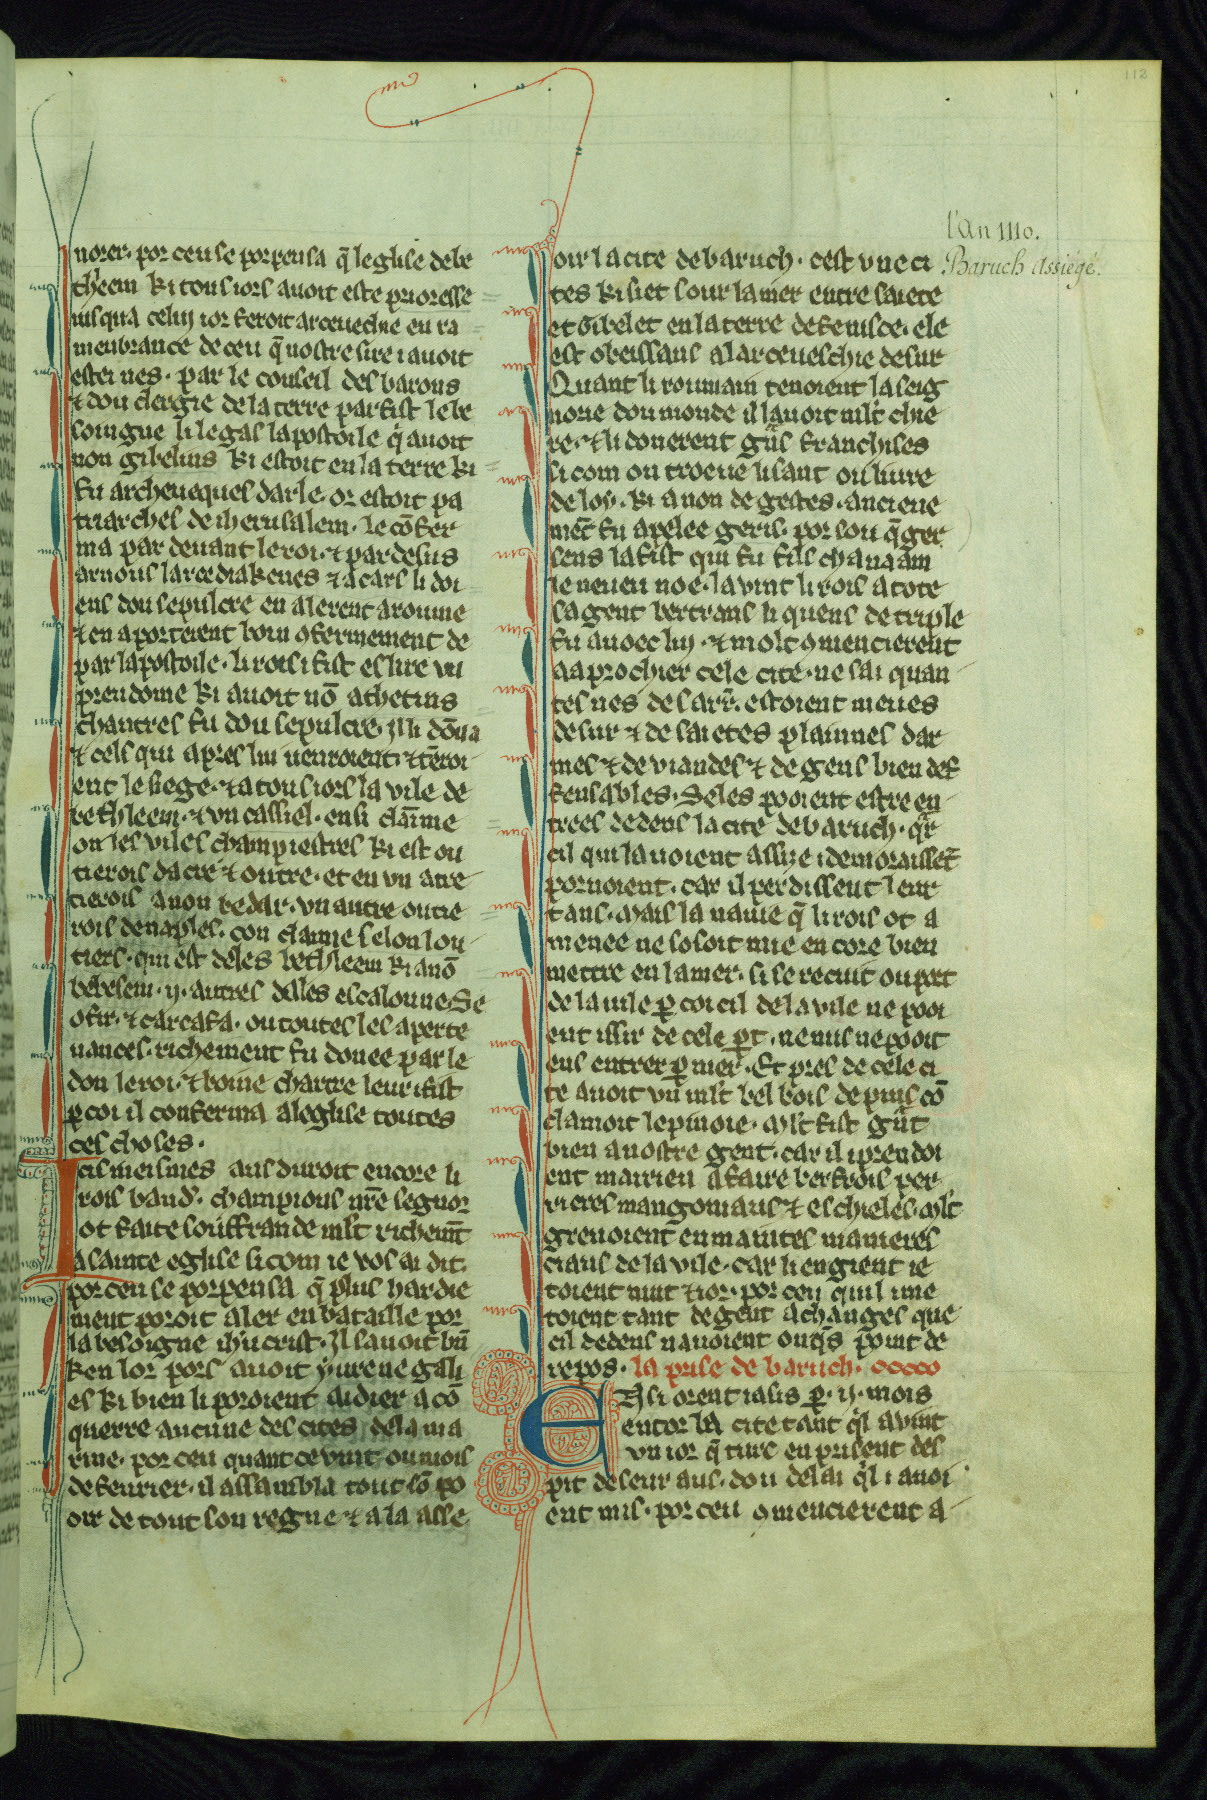 112
l'An 1110.
Baruch Assiégé.
norer. por ceu se porpensa q̃ leglise de be
th'eem ki tous iors auoit este prioresse
iusqua celui ior feroit arceueschie en ra
menbrance de ceu q̃ nostre sire i auoit
este nes. par le conseil des barons
⁊ dou clergie de la terre par fist le be
soingne li legas lapostoile q̃ auoit
non gibelins ki estoit en la terre ki
fu archeuesques darle. or estoit pa
triarches de iherusalem. le cõfer
ma par deuant le roi. ⁊ par desus
arnous larcediakenes ⁊ acars li doi
ens dou sepulcre en alerent a roume
⁊ en aporterent boin ꝯfermement de
par lapostoile. li rois i fist eslire vn
preudome ki auoit nõ athetins
chantres fu dou sepulcre. Il li dõna
⁊ cels qui apres lui uenroient. ⁊ tẽroi
ent le siege. ⁊ a tous iors la vile de
bethleem. ⁊ vn cassiel. ensi claĩme
on les viles champiestres ki est ou
tierois dacre ⁊ outre. et en vn atre
tierois a non bedar. vn autre ou tie
rois de naples. con claime selon lou
tiers. qui est deles bethleem ki a nõ
bebesem. ij. autres deles escalonne Se
ofir. ⁊ carcafa. ou toutes les aperte
nances. richement fu donee par le
don le roi. ⁊ boine chartre leur i fist
ꝑ coi il conferma a leglise toutes
ces choses.
Icis meismes ans duroit encore li
rois baud'. champions nr̃e segnor
ot faite souffrande ml't richem̃t
a sainte eglise si com ie vos ai dit.
por ceu se porpensa q̃ plus hardie
ment poroit aler en bataille por
la besoigne ih'u crist. Il sauoit bñ
ken lor pors auoit y urene gali
es ki bien li poroient aidier a cõ
querre aucune des cites de la ma
rine. por ceu quant ce vint ou mois
de feurier. il assambla tout sõ po
oir de tout son regne ⁊ a la asse
oir la cite de baruch. cest vne ci
tes ki siet sour la mer entre saiete
et Gibelet en la terre de fenisce. ele
est obeissans a larceueschie de sur
Quant li roumain tenoient la seig
norie dou monde il lauoit ml't chie
re. ⁊ li donerent grãs franchises
si com on troeue lisant ou liure
de loy. ki a non degestes. anciene
mẽt fu apelee geris. por sou q̃ ger
sens la fist qui fu fils chanaam
le neueu noe. la vint li rois a tote
sa gent bertrans li quens de triple
fu auoec lui. ⁊ molt ꝯmencierent
a aprochier cele cite. ne sai quan
tes nes des arr̃. estoient meues
de sur ⁊ de saietes plainnes dar
mes ⁊ de viandes ⁊ de gens bien def
fensables. Seles pooient estre en
trees dedens la cite de baruch. q̃r
cil qui lauoient assise i demoraissẽt
por noient. car il perdissent leur
tans. Mais la nauie q̃ li rois ot a
menee ne sosoit mie encore bien
mettre en la mer. si se recuit ou port
de la uile ꝑ coi cil de la vile ne pooi
ent issir de cele ꝑt. ne nus ne pooit
ens entrer ꝑ mer. Et pres de cele ci
te auoit vn ml't bel bois de pins cõ
clamoit le pinoie. Ml't fist grãt
bien a nostre gent. car il i prendoi
ent mairien a faire berfrois per
rieres mangoniaus ⁊ eschieles. Ml't
greuoient en maintes manieres
ciaus de la vile. car li engient ie
toient nuit ⁊ ior. por ceu quil i me
toient tant de gent a changes que
cil dedens nauoient onq̃s point de
repos. la prise de baruch.
Ensi orent ia sis ꝑ. ij. mois
entor la cite tant q̃l auint
vn ior q̃ turc en prisent des
pit deseur aus. dou delai q̃l i auoi
ent mis. por ceu ꝯmencierent a